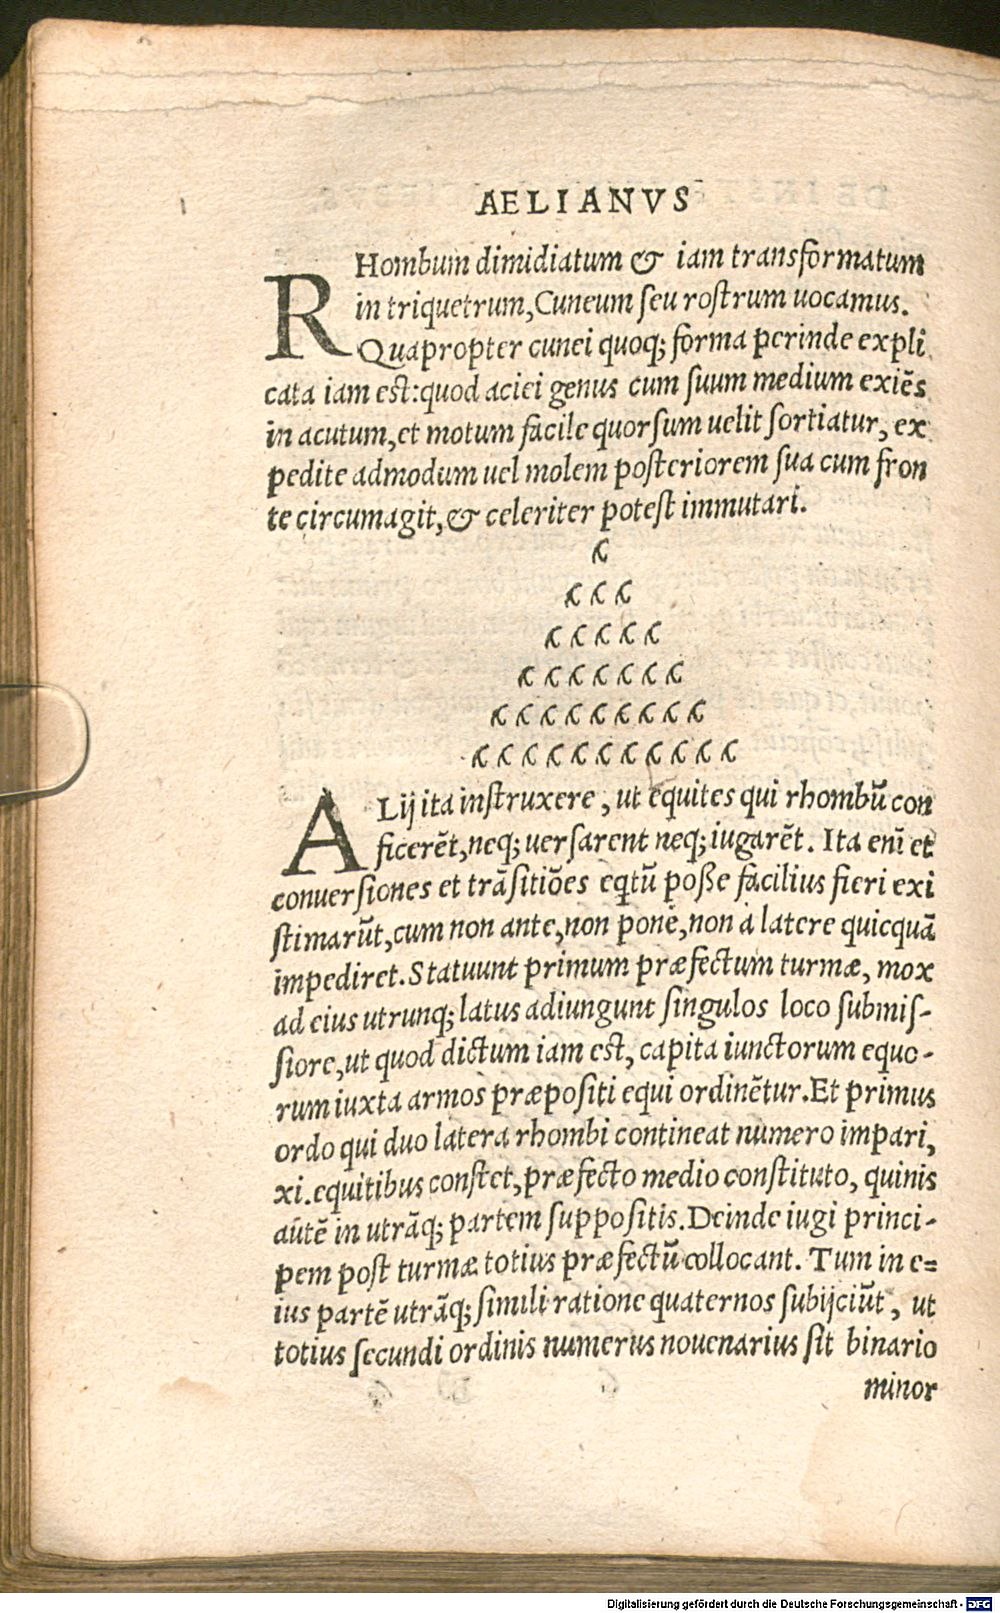 AELIANVS
RHombum dimidiatum & iam transformatum
in triquetrum, Cuneum ſeu roſtrum uocamus.
Quapropter cunei quoq; forma perinde expli
cata iam eſt: quod aciei genus cum ſuum medium exiẽs
in acutum, et motum facile quorſum uelit ſortiatur, ex
pedite admodum uel molem poſteriorem ſua cum fron
te circumagit, & celeriter poteſt immutari.
ALij ita inſtruxere, ut equites qui rhombũ con
ficerẽt, neq; uerſarent neq; iugarẽt. Ita enĩ et
conuerſiones et trãſitiões eqtũ poſſe facilius fieri exi
ſtimarũt, cum non ante, non pone, non à latere quicquã
impediret. Statuunt primum præfectum turmæ, mox
ad eius utrunq; latus adiungunt ſingulos loco ſubmiſ-
ſiore, ut quod dictum iam eſt, capita iunctorum equo-
rum iuxta armos præpoſiti equi ordinẽtur. Et primus
ordo qui duo latera rhombi contineat numero impari,
xi. equitibus conſtet, præfecto medio conſtituto, quinis
aũtẽ in utrãq; partem ſuppoſitis. Deinde iugi princi-
pem poſt turmæ totius præfectũ collocant. Tum in e=
ius partẽ utrãq; ſimili ratione quaternos ſubijciũt, ut
totius ſecundi ordinis numerus nouenarius ſit binario
minor
Digitalisierung gefördert durch die Deutsche Forschungsgemeinschaft - DFG